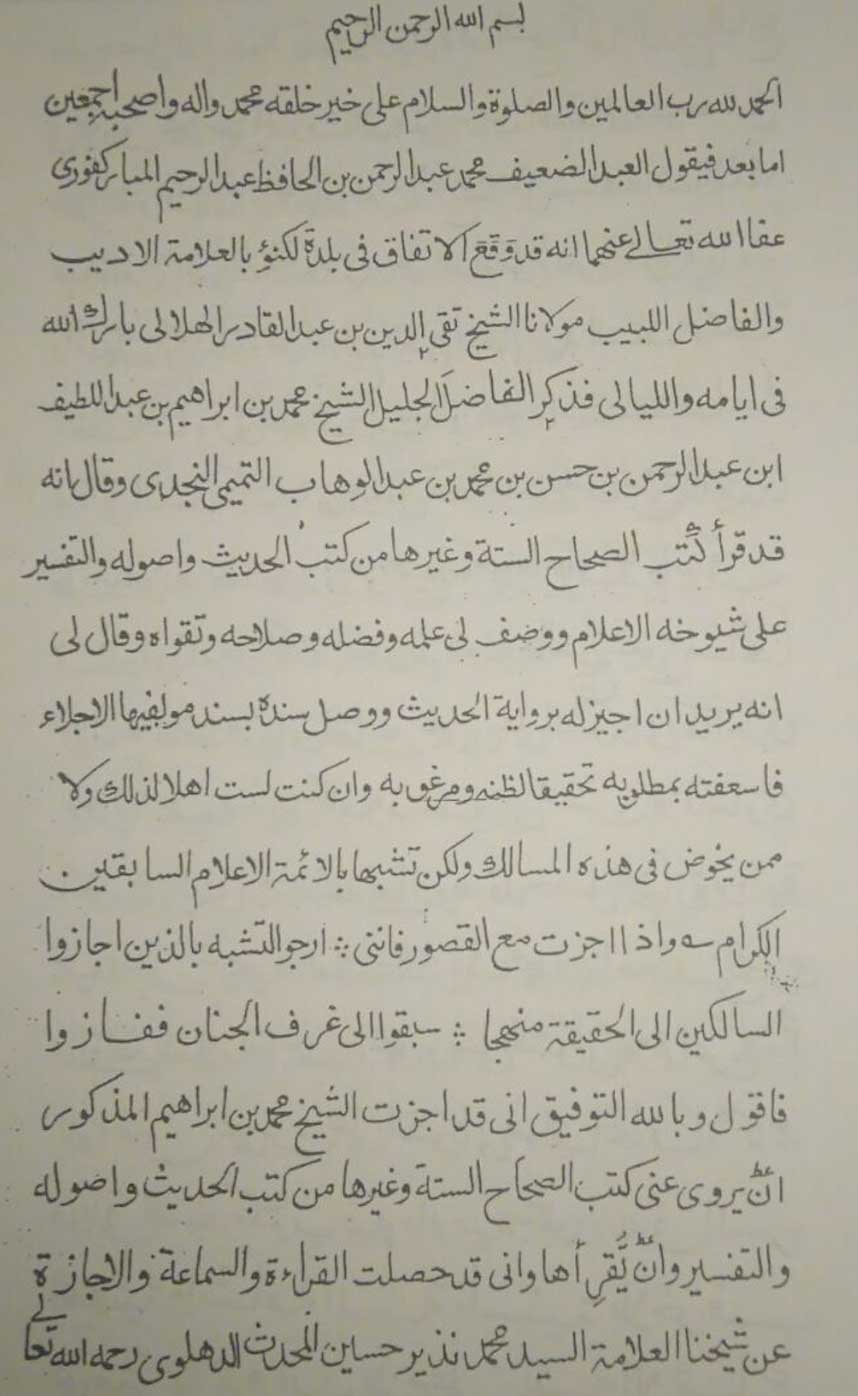 بسم الله الرحمن الرحيم
الحمد لله رب العالمين والصلوة والسلام على خير خلقه محمد واله واصحبه اجمعين
اما بعد فيقول العبد الضعيف محمد عبد الرحمن بن الحافظ عبد الرحيم المباركفورى
عفا الله تعالے عنهما انه قد وَقَعَ الاتفاق فى بلدة لكنؤ بالعلامة الاديب
والفاضل اللبيب مولانا الشيخ تقى الدين بن عبد القادر الهلالى بارك الله
فى ايامه والليالى فذكر الفاضلَ الجليل الشيخ محمد بن ابراهيم بن عبد اللطيف
ابن عبد الرحمن بن حسن بن محمد بن عبد الوهاب التميمى النجدى وقال انه
قد قرأ كُتب الصحاح الستة وغيرها من كتب الحديث واصوله والتفسير
على شيوخه الاعلام ووصف لى علمه وفضله وصلاحه وتقواه وقال لى
انه يريد ان اجيز له برواية الحديث ووصل سندة بسند مولفيها الاجلاء
فاسعفته بمطلوبه تحقيقا لظنه ومرغوبه وان كنت لست اهلا لذلك ولا
ممن يخوض فى هذه المسالك ولكن تشبها بالائمة الاعلام السابقين
الكرام ؎ واذا اجزت مع القصور فاننى ؞ ارجو التشبه بالذين اجازوا
السالكين الى الحقيقة منهجا ؞ سبقوا الى غرف الجنان ففازوا
فاقول وبالله التوفيق انى قد اجزت الشيخ محمد بن ابراهيم المذكور
انّ يروى عنى كتب الصحاح الستة وغيرها من كتب الحديث واصوله
والتفسير وانّ يُّقرِأها وانى قد حصلت القراءة والسماعة والاجازة
عن شيخنا العلامة السيد محمد نذير حسين المحدث الدهلوى رحمه الله تعالے